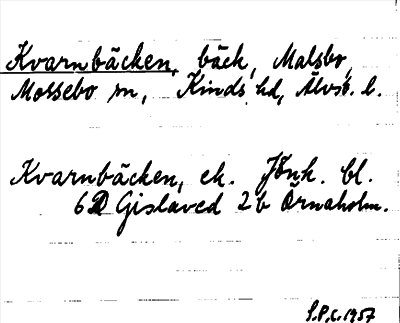 Kvarnbäcken, bäck, Malsbo,
Mossebo sn, Kinds hd, Älvsb. l.
Kvarnbäcken, ek. Jönk. bl.
6D Gislaved 2b Örnaholm.
S.P.C. 1957